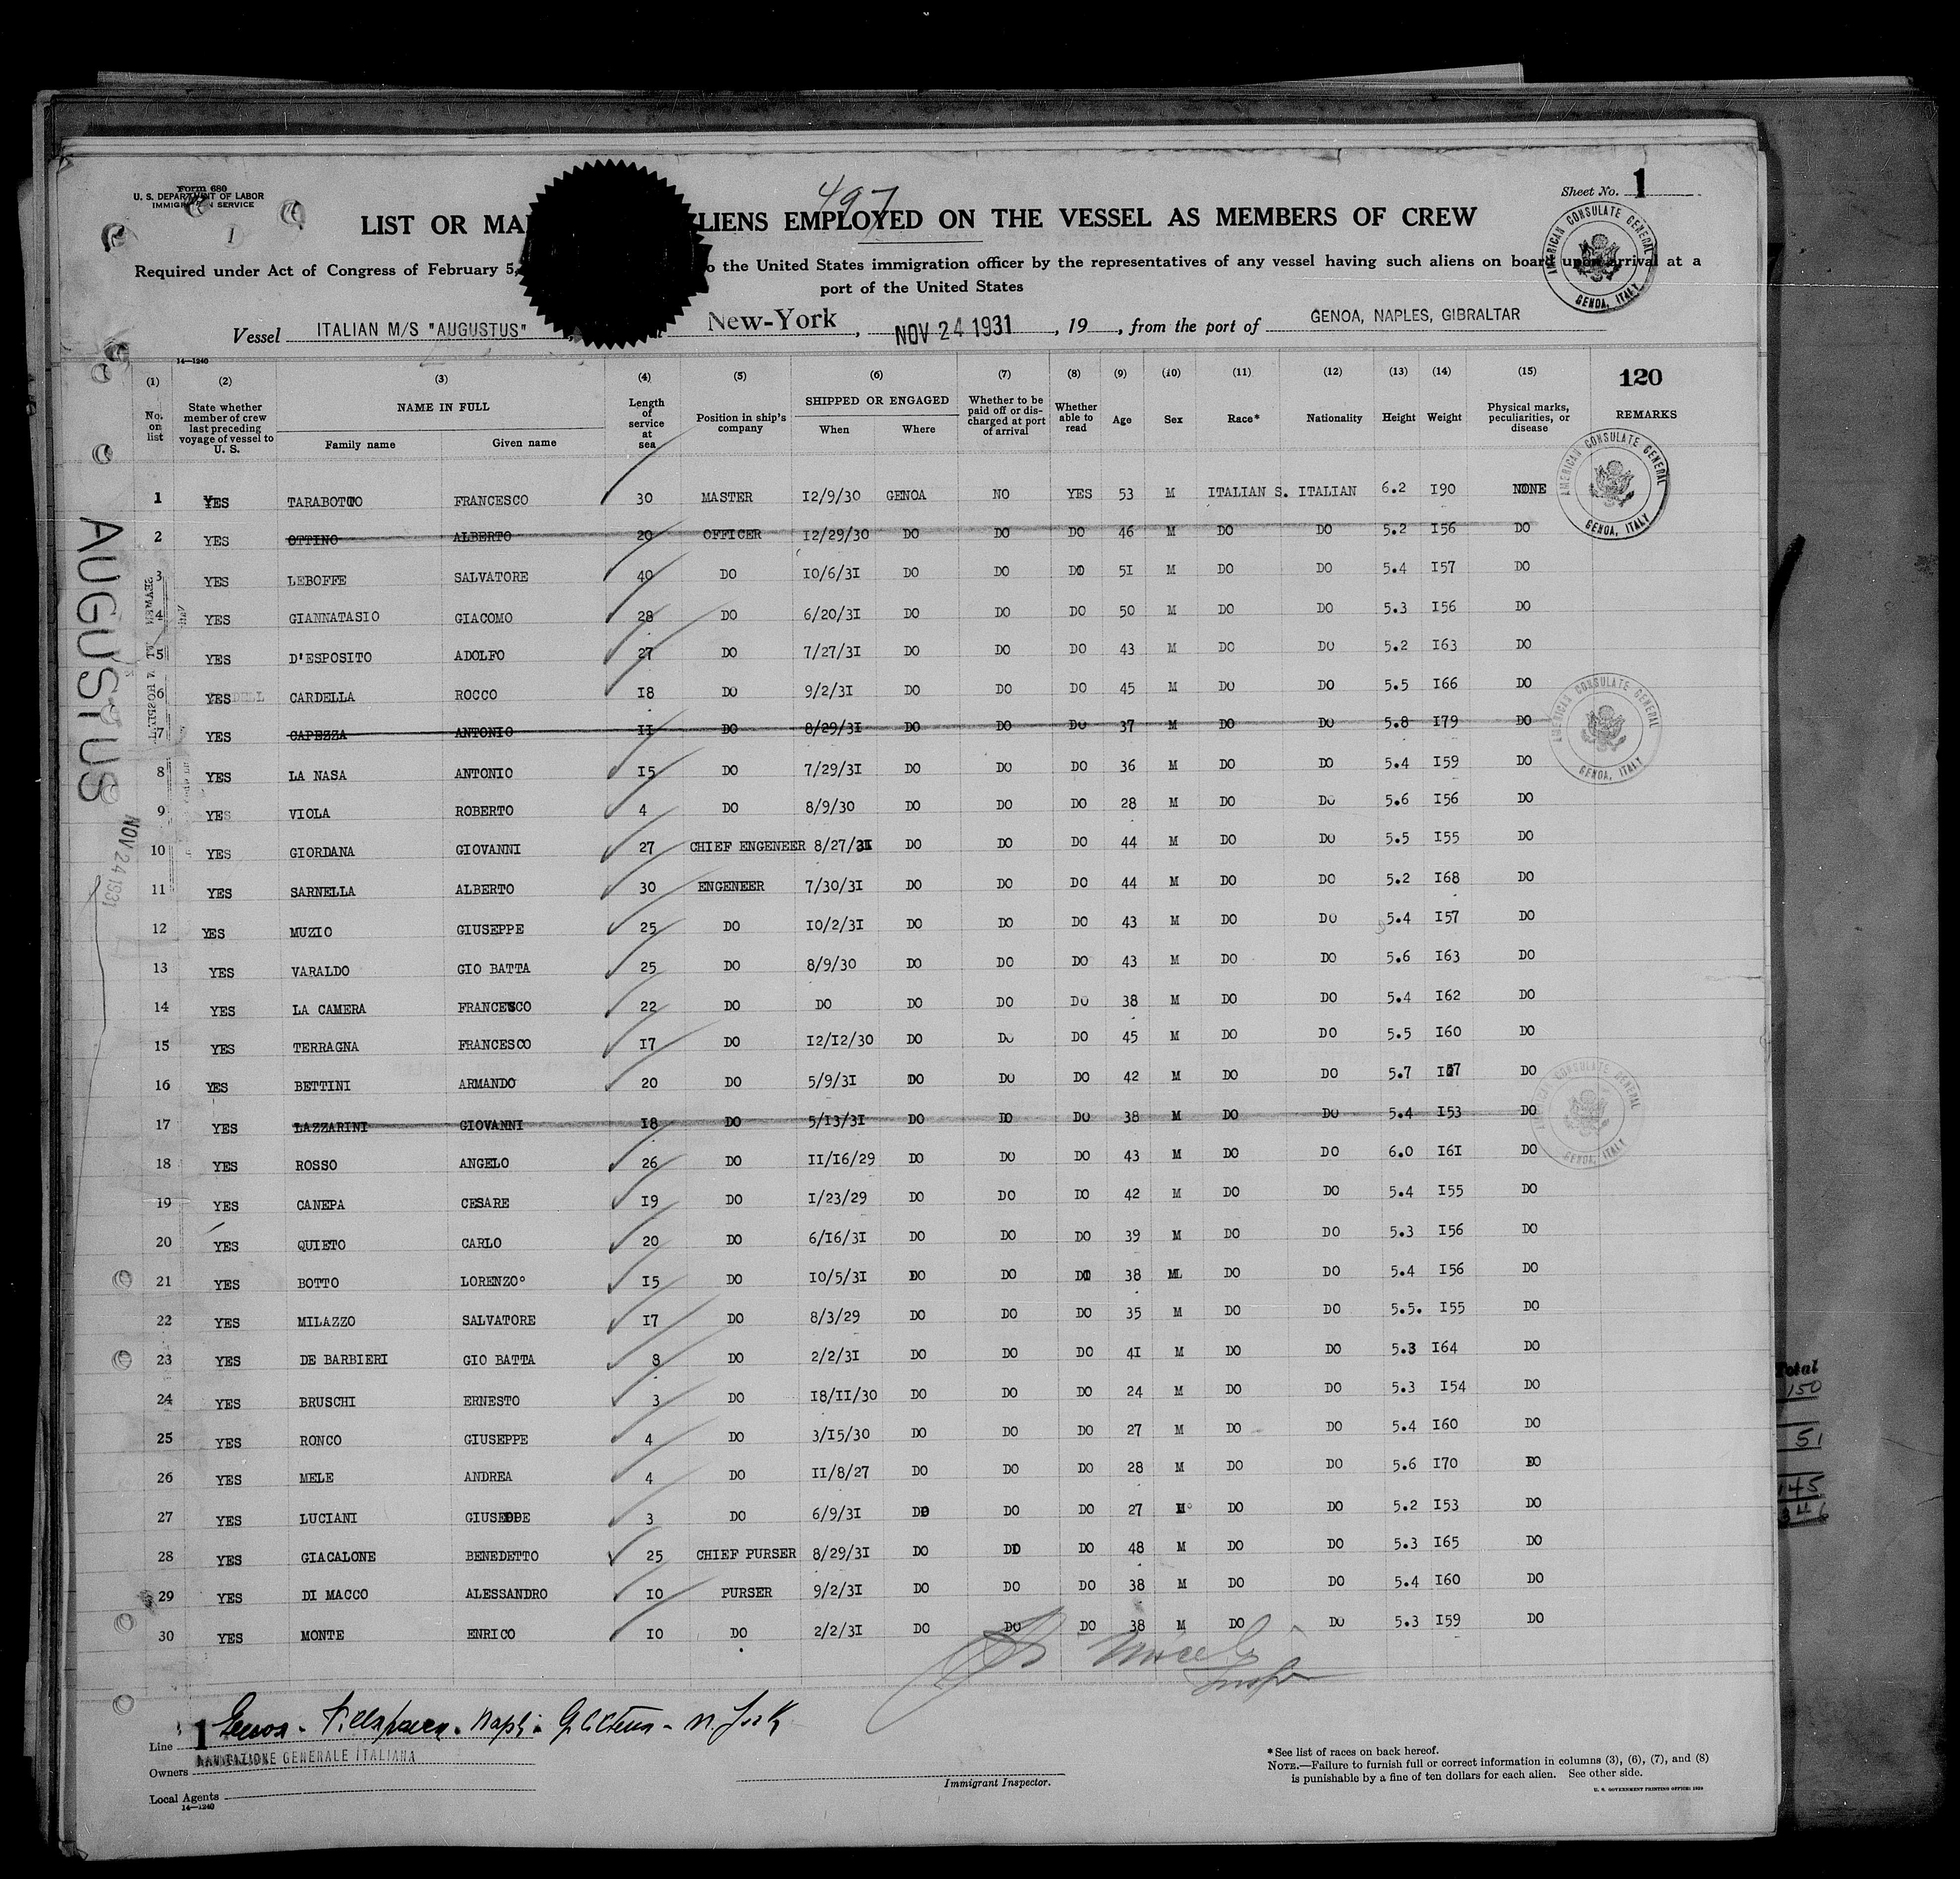 Form 680
U. S. DEPARTMENT OF LABOR
IMMIGRATION SERVICE
497
Sheet No. 1
LIST OR MA LIENS EMPLOYED ON THE VESSEL AS MEMBERS OF CREW
Required under Act of Congress of February 5, o the United States immigration officer by the representatives of any vessel having such aliens on board upon arrival at a
port of the United States
AMERICAN CONSULATE GENERAL GENOA, ITALY
Vessel ITALIAN M/S "AUGUSTUS", New-York, NOV 24 1931, 19 , from the port of GENOA, NAPLES, GIBRALTAR
14—1240
(1) (2) (3) (4) (5) (6) (7) (8) (9) (10) (11) (12) (13) (14) (15) 120
No. on list | State whether member of crew last preceding voyage of vessel to U. S. | NAME IN FULL Family name Given name | Length of service at sea | Position in ship's company | SHIPPED OR ENGAGED When Where | Whether to be paid off or discharged at port of arrival | Whether able to read | Age | Sex | Race* | Nationality | Height | Weight | Physical marks, peculiarities, or disease | REMARKS
1 YES TARABOTTO FRANCESCO 30 MASTER 12/9/30 GENOA NO YES 53 M ITALIAN S. ITALIAN 6.2 190 NONE
2 YES OTTINO ALBERTO 20 OFFICER 12/29/30 DO DO DO 46 M DO DO 5.2 156 DO
3 YES LEBOFFE SALVATORE 40 DO 10/6/31 DO DO DO 51 M DO DO 5.4 157 DO
4 YES GIANNATASIO GIACOMO 28 DO 6/20/31 DO DO DO 50 M DO DO 5.3 156 DO
5 YES D'ESPOSITO ADOLFO 27 DO 7/27/31 DO DO DO 43 M DO DO 5.2 163 DO
6 YES CARDELLA ROCCO 18 DO 9/2/31 DO DO DO 45 M DO DO 5.5 166 DO
7 YES CAPEZZA ANTONIO 11 DO 8/29/31 DO DO DO 37 M DO DO 5.8 179 DO
8 YES LA NASA ANTONIO 15 DO 7/29/31 DO DO DO 36 M DO DO 5.4 159 DO
9 YES VIOLA ROBERTO 4 DO 8/9/30 DO DO DO 28 M DO DO 5.6 156 DO
10 YES GIORDANA GIOVANNI 27 CHIEF ENGENEER 8/27/31 DO DO DO 44 M DO DO 5.5 155 DO
11 YES SARNELLA ALBERTO 30 ENGENEER 7/30/31 DO DO DO 44 M DO DO 5.2 168 DO
12 YES MUZIO GIUSEPPE 25 DO 10/2/31 DO DO DO 43 M DO DO 5.4 157 DO
13 YES VARALDO GIO BATTA 25 DO 8/9/30 DO DO DO 43 M DO DO 5.6 163 DO
14 YES LA CAMERA FRANCESCO 22 DO DO DO DO DO 38 M DO DO 5.4 162 DO
15 YES TERRAGNA FRANCESCO 17 DO 12/12/30 DO DO DO 45 M DO DO 5.5 160 DO
16 YES BETTINI ARMANDO 20 DO 5/9/31 DO DO DO 42 M DO DO 5.7 DO
17 YES LAZZARINI GIOVANNI 18 DO 5/13/31 DO DO DO 38 M DO DO 5.4 153 DO
18 YES ROSSO ANGELO 26 DO 11/16/29 DO DO DO 43 M DO DO 6.0 161 DO
19 YES CANEPA CESARE 19 DO 1/23/29 DO DO DO 42 M DO DO 5.4 155 DO
20 YES QUIETO CARLO 20 DO 6/16/31 DO DO DO 39 M DO DO 5.3 156 DO
21 YES BOTTO LORENZO 15 DO 10/5/31 DO DO DO 38 M DO DO 5.4 156 DO
22 YES MILAZZO SALVATORE 17 DO 8/3/29 DO DO DO 35 M DO DO 5.5. 155 DO
23 YES DE BARBIERI GIO BATTA 8 DO 2/2/31 DO DO DO 41 M DO DO 5.3 164 DO
24 YES BRUSCHI ERNESTO 3 DO 18/11/30 DO DO DO 24 M DO DO 5.3 154 DO
25 YES RONCO GIUSEPPE 4 DO 3/15/30 DO DO DO 27 M DO DO 5.4 160 DO
26 YES MELE ANDREA 4 DO 11/8/27 DO DO DO 28 M DO DO 5.6 170 DO
27 YES LUCIANI GIUSEPPE 3 DO 6/9/31 DO DO DO 27 M DO DO 5.2 153 DO
28 YES GIACALONE BENEDETTO 25 CHIEF PURSER 8/29/31 DO DO DO 48 M DO DO 5.3 165 DO
29 YES DI MACCO ALESSANDRO 10 PURSER 9/2/31 DO DO DO 38 M DO DO 5.4 160 DO
30 YES MONTE ENRICO 10 DO 2/2/31 DO DO DO 38 M DO DO 5.3 159 DO
AMERICAN CONSULATE GENERAL GENOA, ITALY
AMERICAN CONSULATE GENERAL GENOA, ITALY
AMERICAN CONSULATE GENERAL GENOA, ITALY
AUGUSTUS
NOV 24 1931
Total
150
51
145
346
Line 1 Genoa - - N. York
Owners NAVIGAZIONE GENERALE ITALIANA
Local Agents
14—1240
Immigrant Inspector.
* See list of races on back hereof.
NOTE.—Failure to furnish full or correct information in columns (3), (6), (7), and (8)
is punishable by a fine of ten dollars for each alien. See other side.
U. S. GOVERNMENT PRINTING OFFICE: 1929